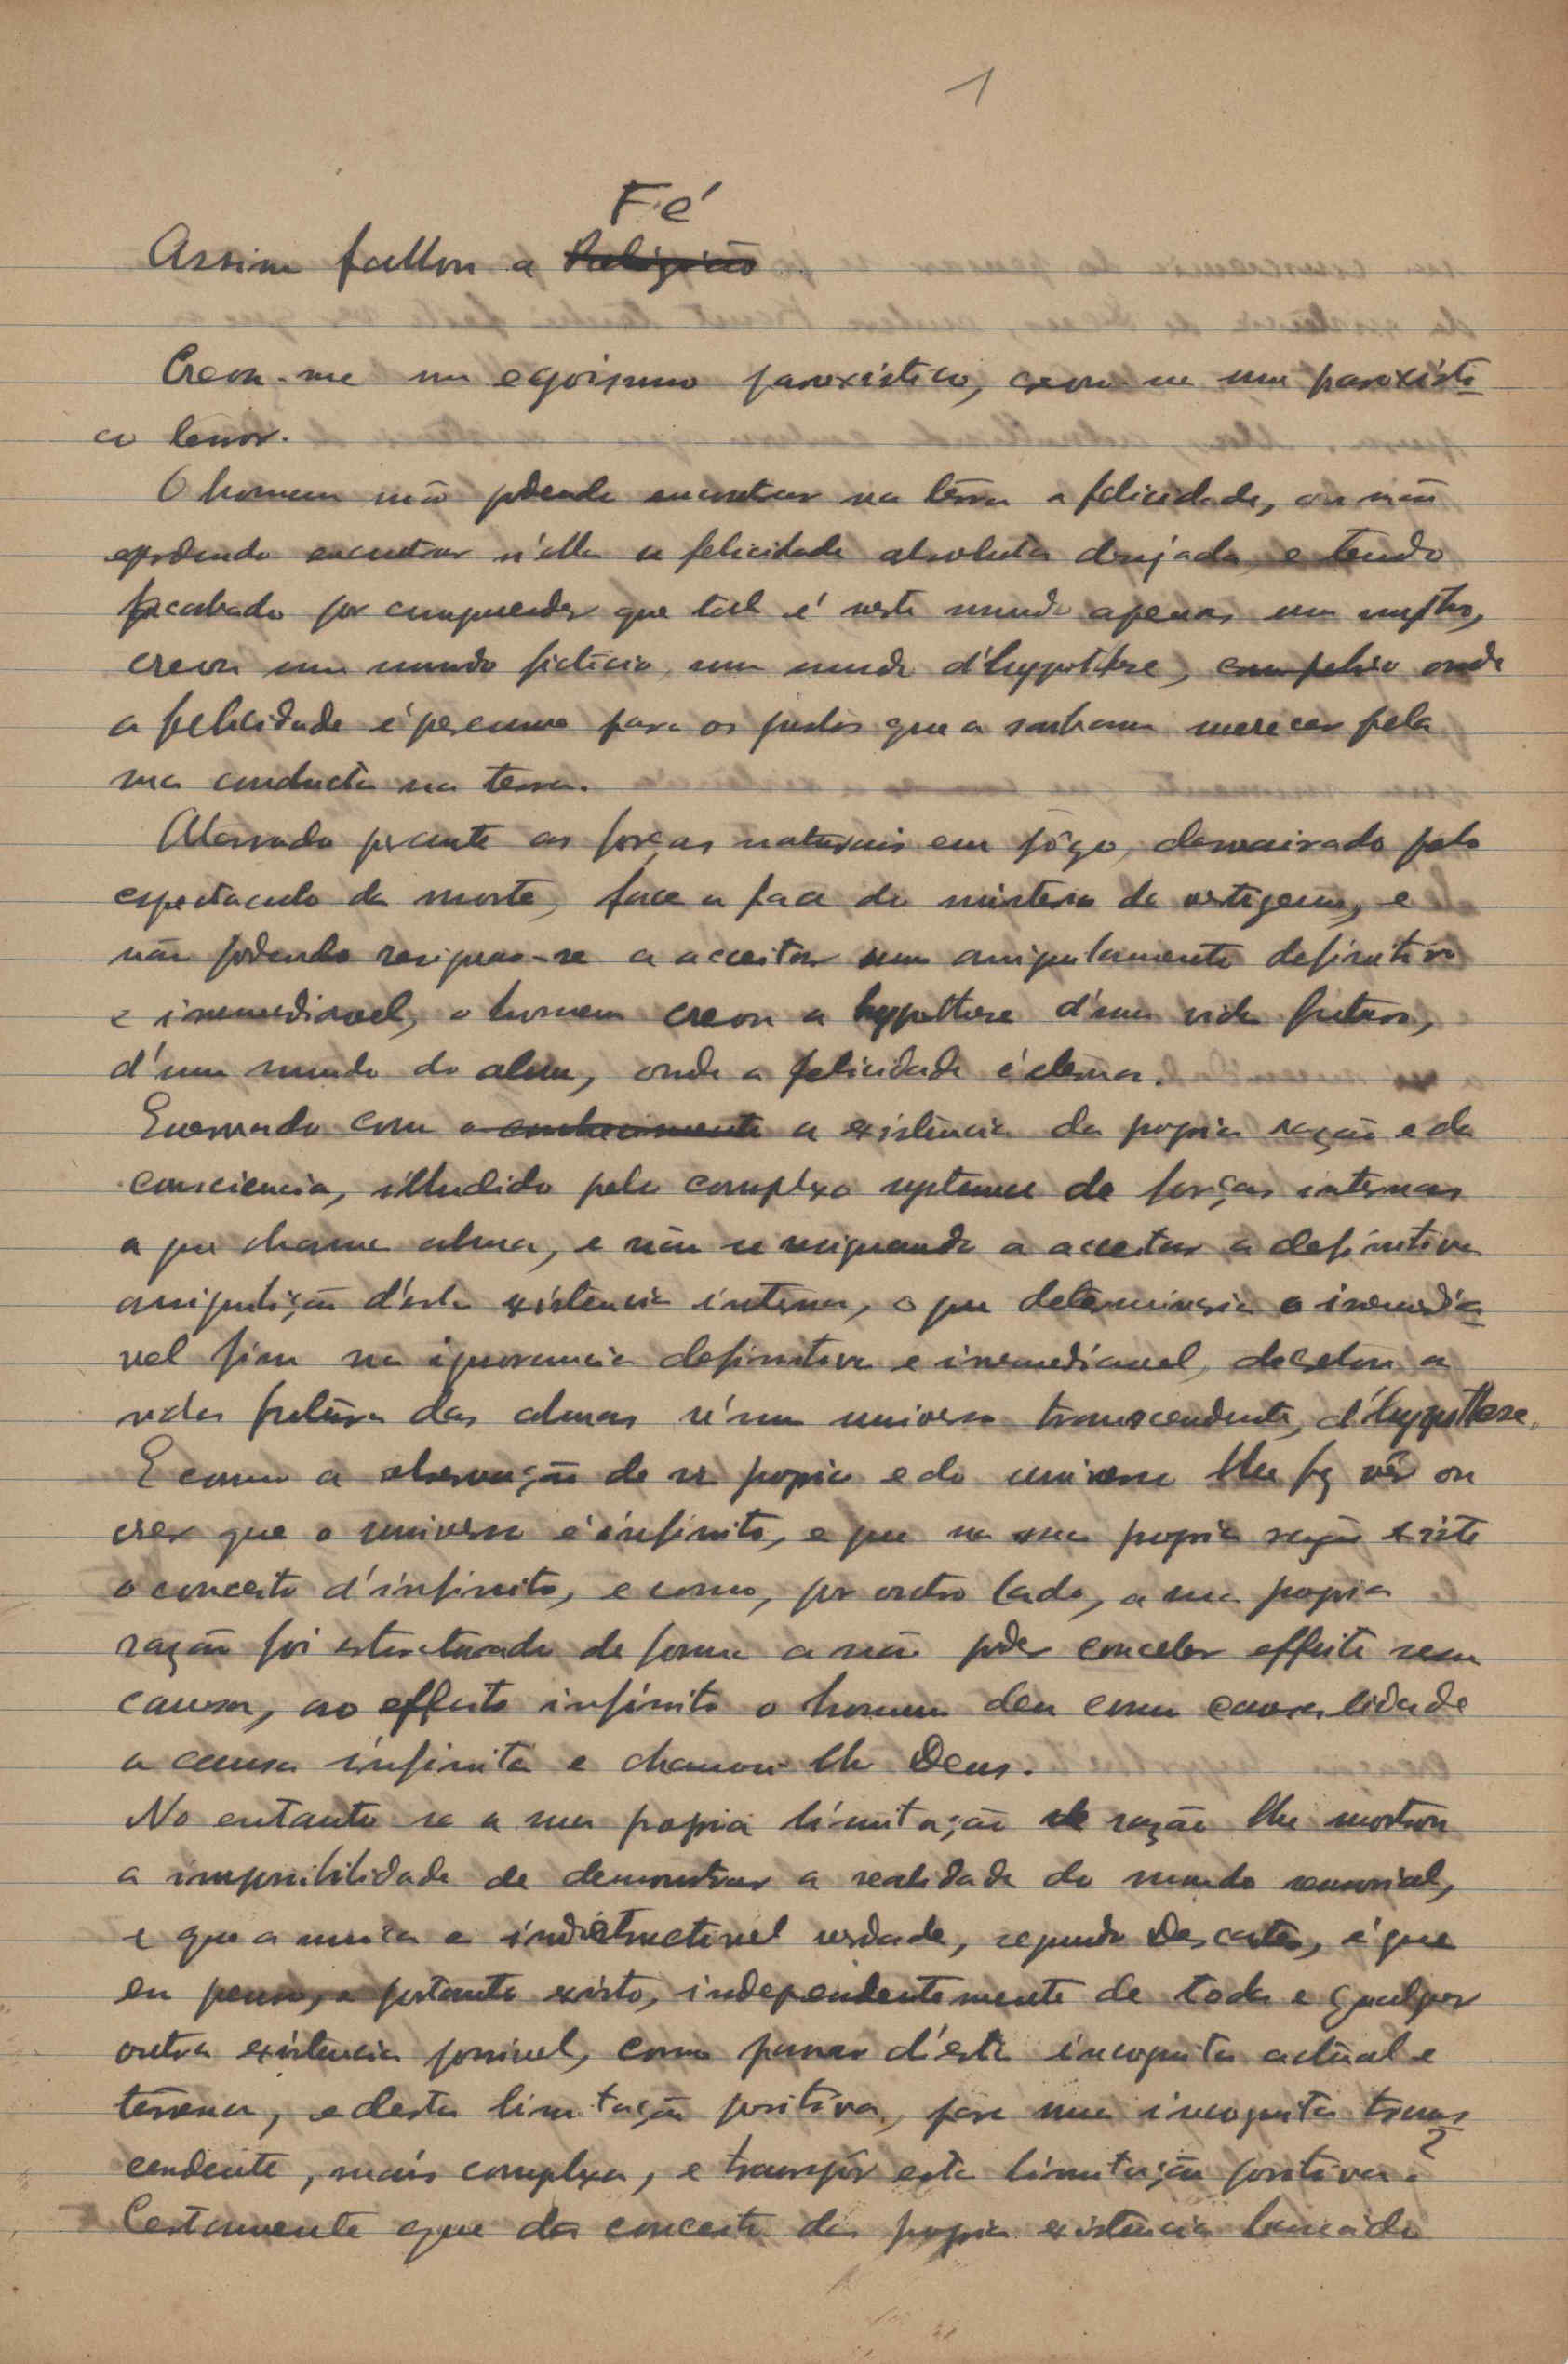 1
Fé
Assim fallou a Religião
Creou-me um egoismo paroxistico, creou-me um paroxisti-
co terror.
O homem não podendo encontrar na terra a felicidade, ou não
podendo encontrar n'ella a felicidade absoluta desejada, e tendo
acabado por comprehender que tal é neste mundo apenas um mytho,
creou um mundo ficticio, um mundo d'hypothese, onde
a felicidade é perenne para os justos que a souberam merecer pela
sua conducta na terra.
Aterrado perante as forças naturais em jôgo, desvairado pelo
espectaculo da morte, face a face do misterio da vertigem, e
não podendo resignar-se a acceitar um aniquilamento definitivo
e irremediavel, o homem creou a hypothese d'uma vida futura,
d'um mundo do alem, onde a felicidade é eterna.
Enervado com o conhecimento a existência da propria razão e da
consciencia, illudido pelo complexo systema de forças internas
a que chama alma, e não se resignando a acceitar a definitiva
aniquilição d'esta existencia interna, o que determinaria o irremedia-
vel fim na ignorancia definitiva e irremediavel, decretou a
vida futura das almas n'um universo transcendente, d'hypothese.
E como a observação de si proprio e do universo lhe fez vêr ou
crer que o universo é infinito, e que na sua propria razão existe
o conceito d'infinito, e como, por outro lado, a sua propria
razão foi estructurada de forma a não poder conceber effeito sem
causa, ao effeito infinito o homem deu como causalidade
a causa infinita e chamou-lhe Deus.
No entanto se a sua propria limitação de razão lhe mostrou
a impossibilidade de demonstrar a realidade do mundo sensorial,
e que a unica e indestructivel verdade, segundo Descartes, é que
eu penso, e portanto existo, independentemente de toda e qualquer
outra existencia possivel, como passar d'esta incognita actual e
terrena, e desta limitação positiva, para uma incognita trans-
cendente, mais complexa, e transpôr esta limitação positiva?
Certamente que do conceito da propria existência